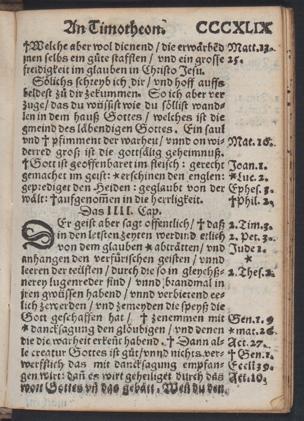 An Timotheon. CCCXLIX
†Welche aber wol dienend / die erwärbẽd Matt.13.
jnen selbs ein gůte stafflen / vnd ein grosse 25.
freidigkeit im glauben in Christo Jesu.
Sölichs schreyb ich dir / vnd hoff auffs
beldest zů dir zekummen. So ich aber ver
züge / das du wüssist wie du söllist wandlen
in dem hauß Gottes / welches ist die
gmeind des läbendigen Gottes. Ein saul
vnd † pfimment der warheit / vnnd on wi Mat.16.
derred groß ist die gottsälig geheimnuß.
†Gott ist geoffenbaret im fleisch: gerecht Joan.1.
gemachet im geist: *erschinen den englen: *Luc.2.
geprediget den Heiden: geglaubt von der Ephes.3.
wält: †aufgenommen in die herrligkeit. †Phil.2.
Das IIII. Cap.
DEr geist aber sagt offentlich / † daß 2.Tim.3.
in den letsten zeyten werdend etlich 2.Pet.3.
von dem glauben * abträtten / vnd Jude 1.
anhangen den verfürischen geisten / vnnd *
leeren der teüflen / durch die so in gleychß- 2.Thes.2.
nerey lugenreder sind / vnnd brandmal in
jren gwüssen habend / vnnd verbietend ee-
lich zewerden / vnd zemeyden die speyß die
Gott geschaffen hat / † zenemmen mit Gen.1.9
* dancksagung den glöubigen / vnd denen *mat.26.
die die warheit erkent habend. † Dann al- Act.27.
le creatur Gottes ist gůt / vnnd nichts ver- † Gen.1.
werfflich das mit dancksagung empfan- Eccli.39.
gen wirt: dañ es wirt geheiliget durch das Act.10.
wort Gottes vñ das gebätt. Weñ du den